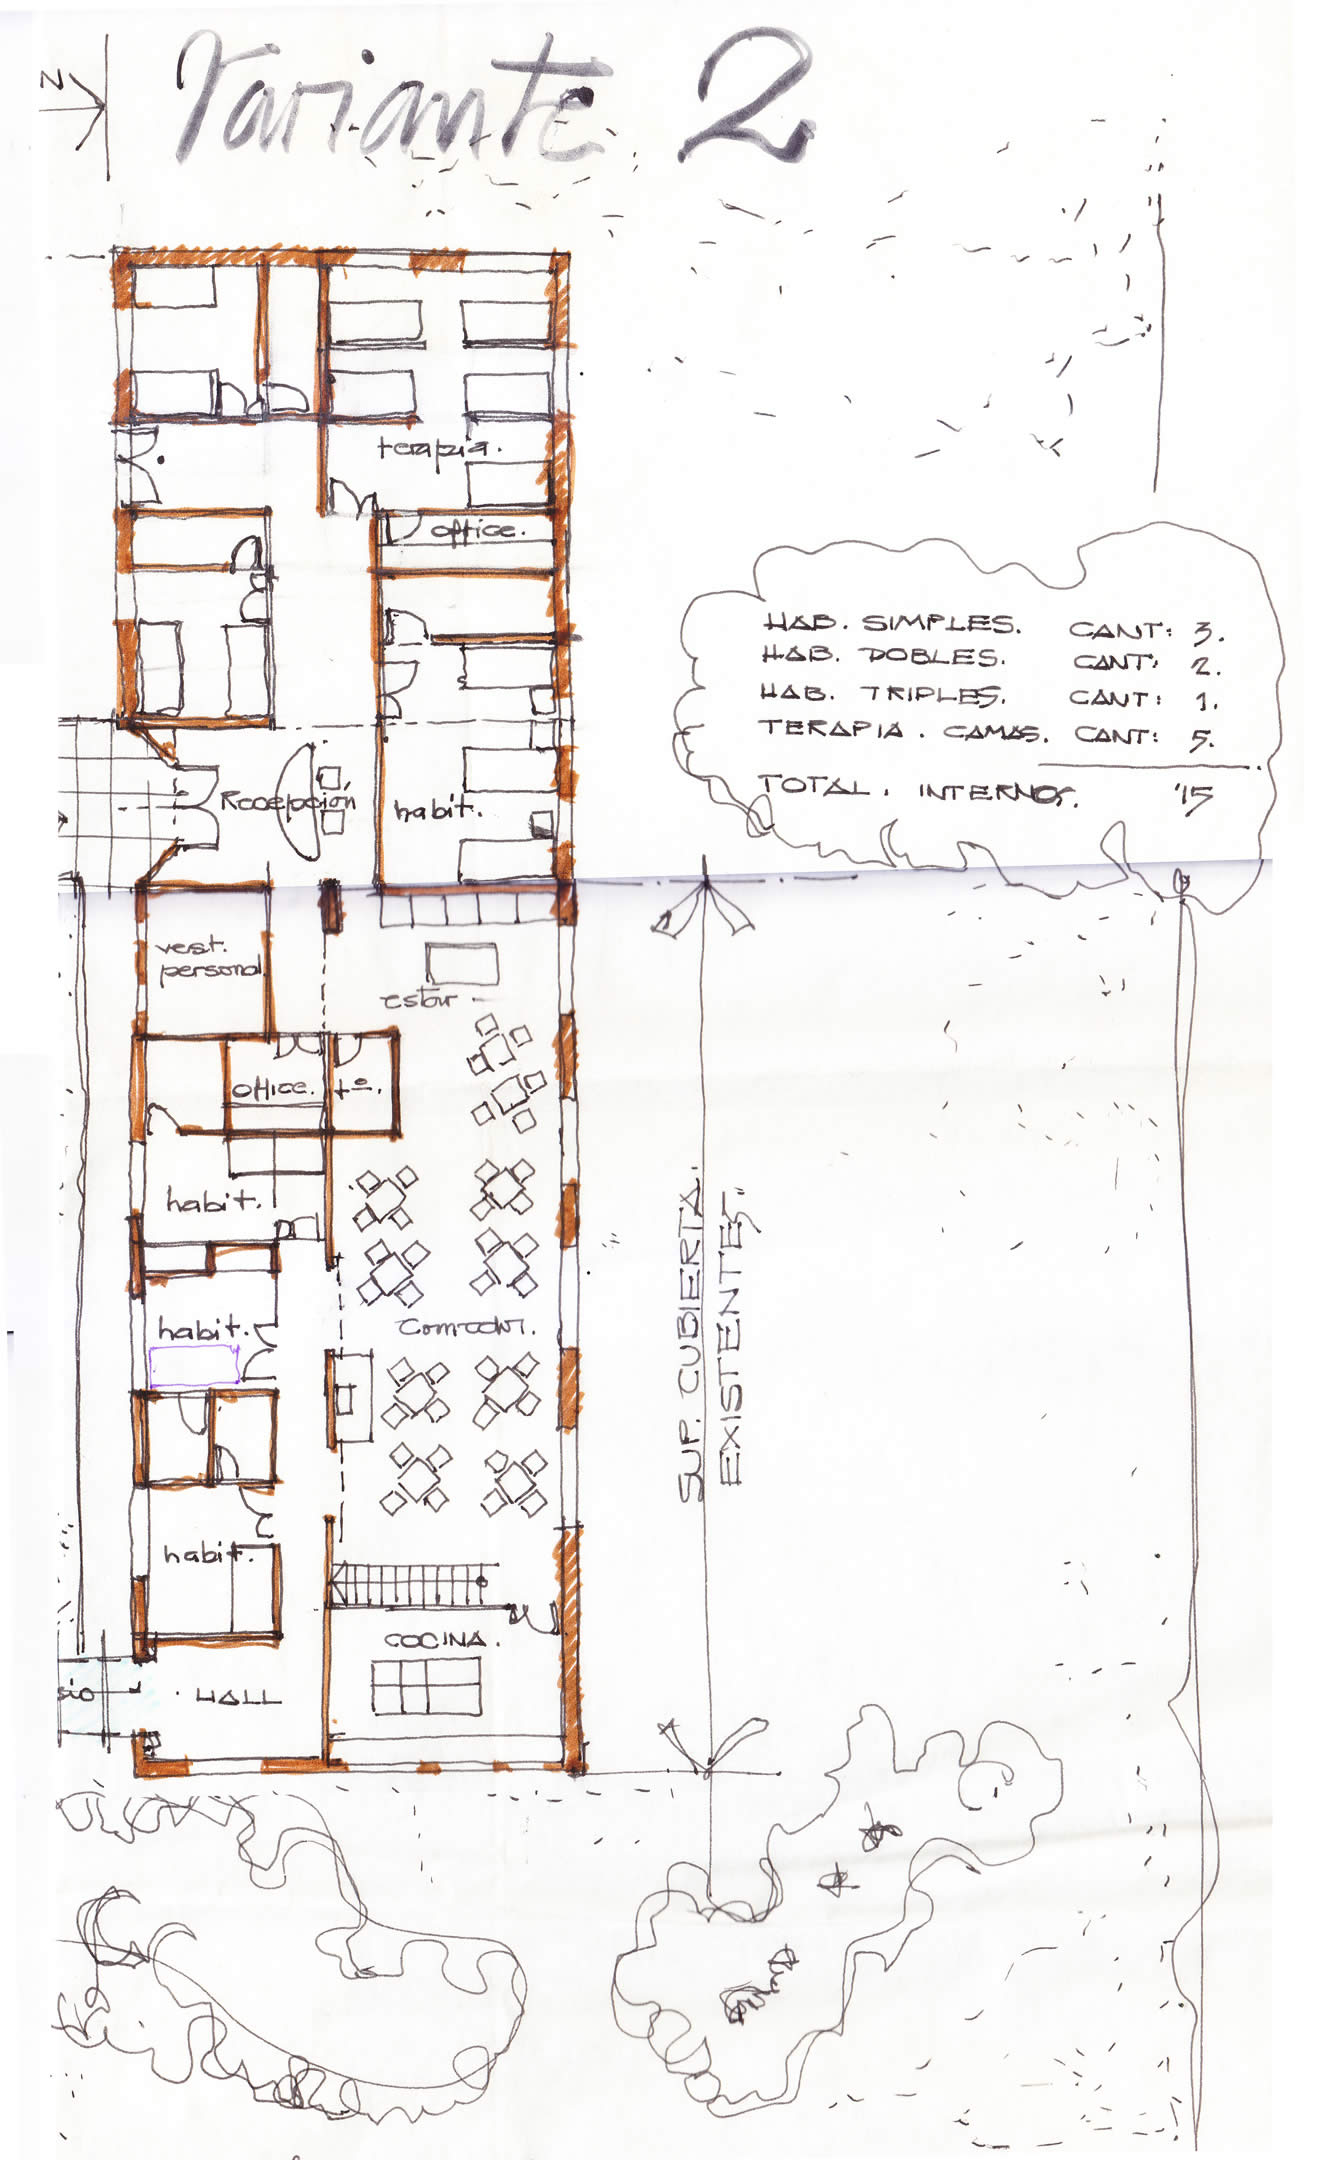 N
Variante 2
terapia.
office.
HAB. SIMPLES. CANT: 3.
HAB. DOBLES. CANT: 2.
HAB. TRIPLES. CANT: 1.
TERAPIA. CAMAS. CANT: 5.
TOTAL. INTERNOS. 15
Recepción
habit.
vest.
personal
estar
office.
habit.
habit.
Comedor.
SUP. CUBIERTA.
EXISTENTES.
habit.
COCINA.
HALL